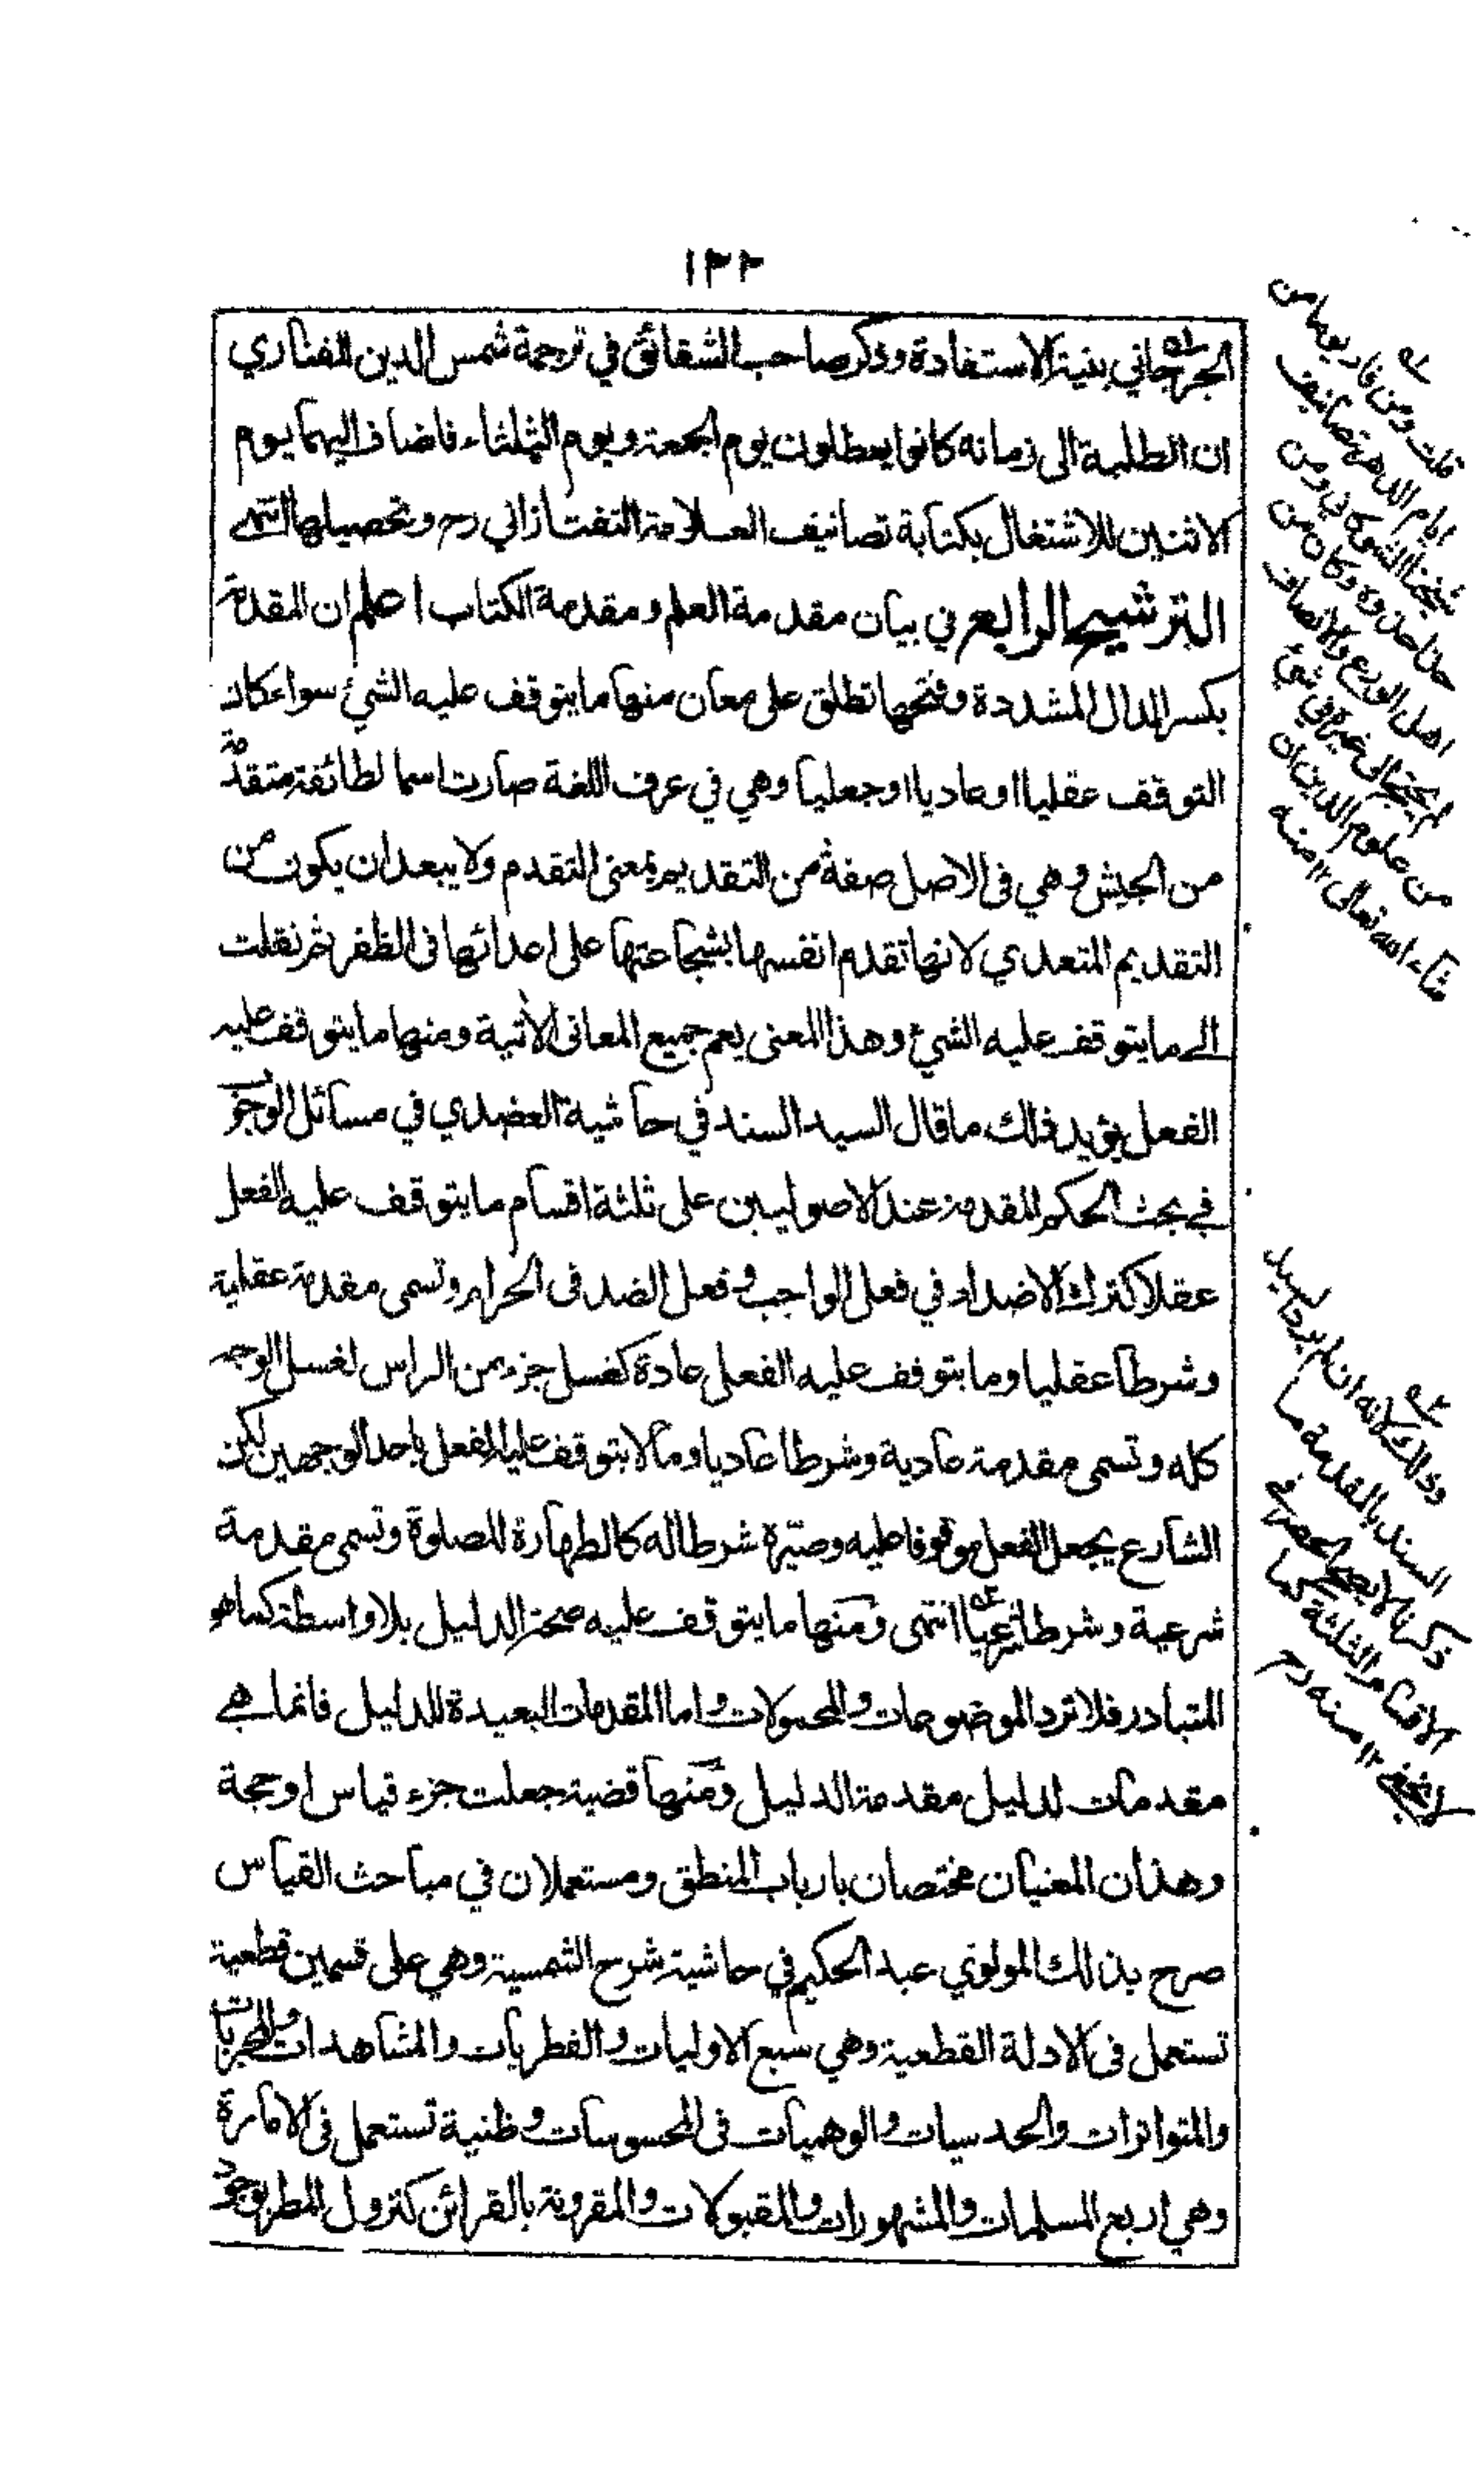 ١٢٢
الجرجاني بنية الاستفادة وذكر صاحب الشقائق في ترجمة شمس الدين الفناري
ان الطلبة الى زمانه كانوا يعطلون يوم الجمعة ويوم الثلثاء فاضاف اليهما يوم
الاثنين للاشتغال بكتابة تصانيف العلامة التفتازاني رح وتحصيلها انتهى
الترشيح الرابع في بيان مقدمة العلم ومقدمة الكتاب اعلم ان المقدمة
بكسر الدال المشددة وفتحها تطلق على معان منها ما يتوقف عليه الشئ سواء كان
التوقف عقليا او عاديا او جعليا وهي في عرف اللغة صارت اسما لطائفة متقدمة
من الجيش وهي فى الاصل صفة من التقديم بمعنى التقدم ولا يبعد ان يكون من
التقديم المتعدي لانها تقدم انفسها بشجاعتها على اعدائها فى الظفر ثم نقلت
الى ما يتوقف عليه الشئ وهذا المعنى يعم جميع المعانى الآتية ومنها ما يتوقف عليه
الفعل يؤيد ذلك ما قال السيد السند في حاشية العضدي في مسائل الوجوب
في بحث الحكم المقدمة عند الاصوليين على ثلثة اقسام ما يتوقف عليه الفعل
عقلا كترك الاضداد في فعل الواجب وفعل الضد فى الحرام وتسمى مقدمة عقلية
وشرطا عقليا وما يتوقف عليه الفعل عادة كغسل جزء من الراس لغسل الوجه
كله وتسمى مقدمة عادية وشرطا عاديا وما لا يتوقف عليه الفعل باحد الوجهين لكن
الشارع يجعل الفعل موقوفا عليه وصيّره شرطا له كالطهارة للصلوة وتسمى مقدمة
شرعية وشرطا شرعيا انتهى ومنها ما يتوقف عليه صحة الدليل بلا واسطة كما هو
المتبادر فلا ترد الموضوعات والمحمولات واما المقدمات البعيدة للدليل فانما هي
مقدمات لدليل مقدمة الدليل ومنها قضية جعلت جزء قياس او حجة
وهذان المعنيان مختصان بارباب المنطق ومستعملان في مباحث القياس
صرح بذلك المولوي عبد الحكيم في حاشية شرح الشمسية وهي على قسمين قطعية
تستعمل فى الادلة القطعية وهي سبع الاوليات والفطريات والمشاهدات والمجربات
والمتواترات والحدسيات والوهميات فى المحسوسات وظنية تستعمل فى الامارة
وهي اربع المسلمات والمشهورات والمقبولات والمقرونة بالقرائن كنزول المطر بوجود
قلت ومن
ايام الله تصانيف
شيخنا الشوكاني ومن
حذا حذوه وكان من
اهل الورع والانصاف
لم يحتج الى غيرها في شئ
من علوم الدين ان
شاء الله تعالى ١٢ منه
وذلك لانه
السند بالمقدمة ما
ذكرنا لا يصح الحصر في
الاقسام الثلثة كما
لا يخفى ١٢ منه رح